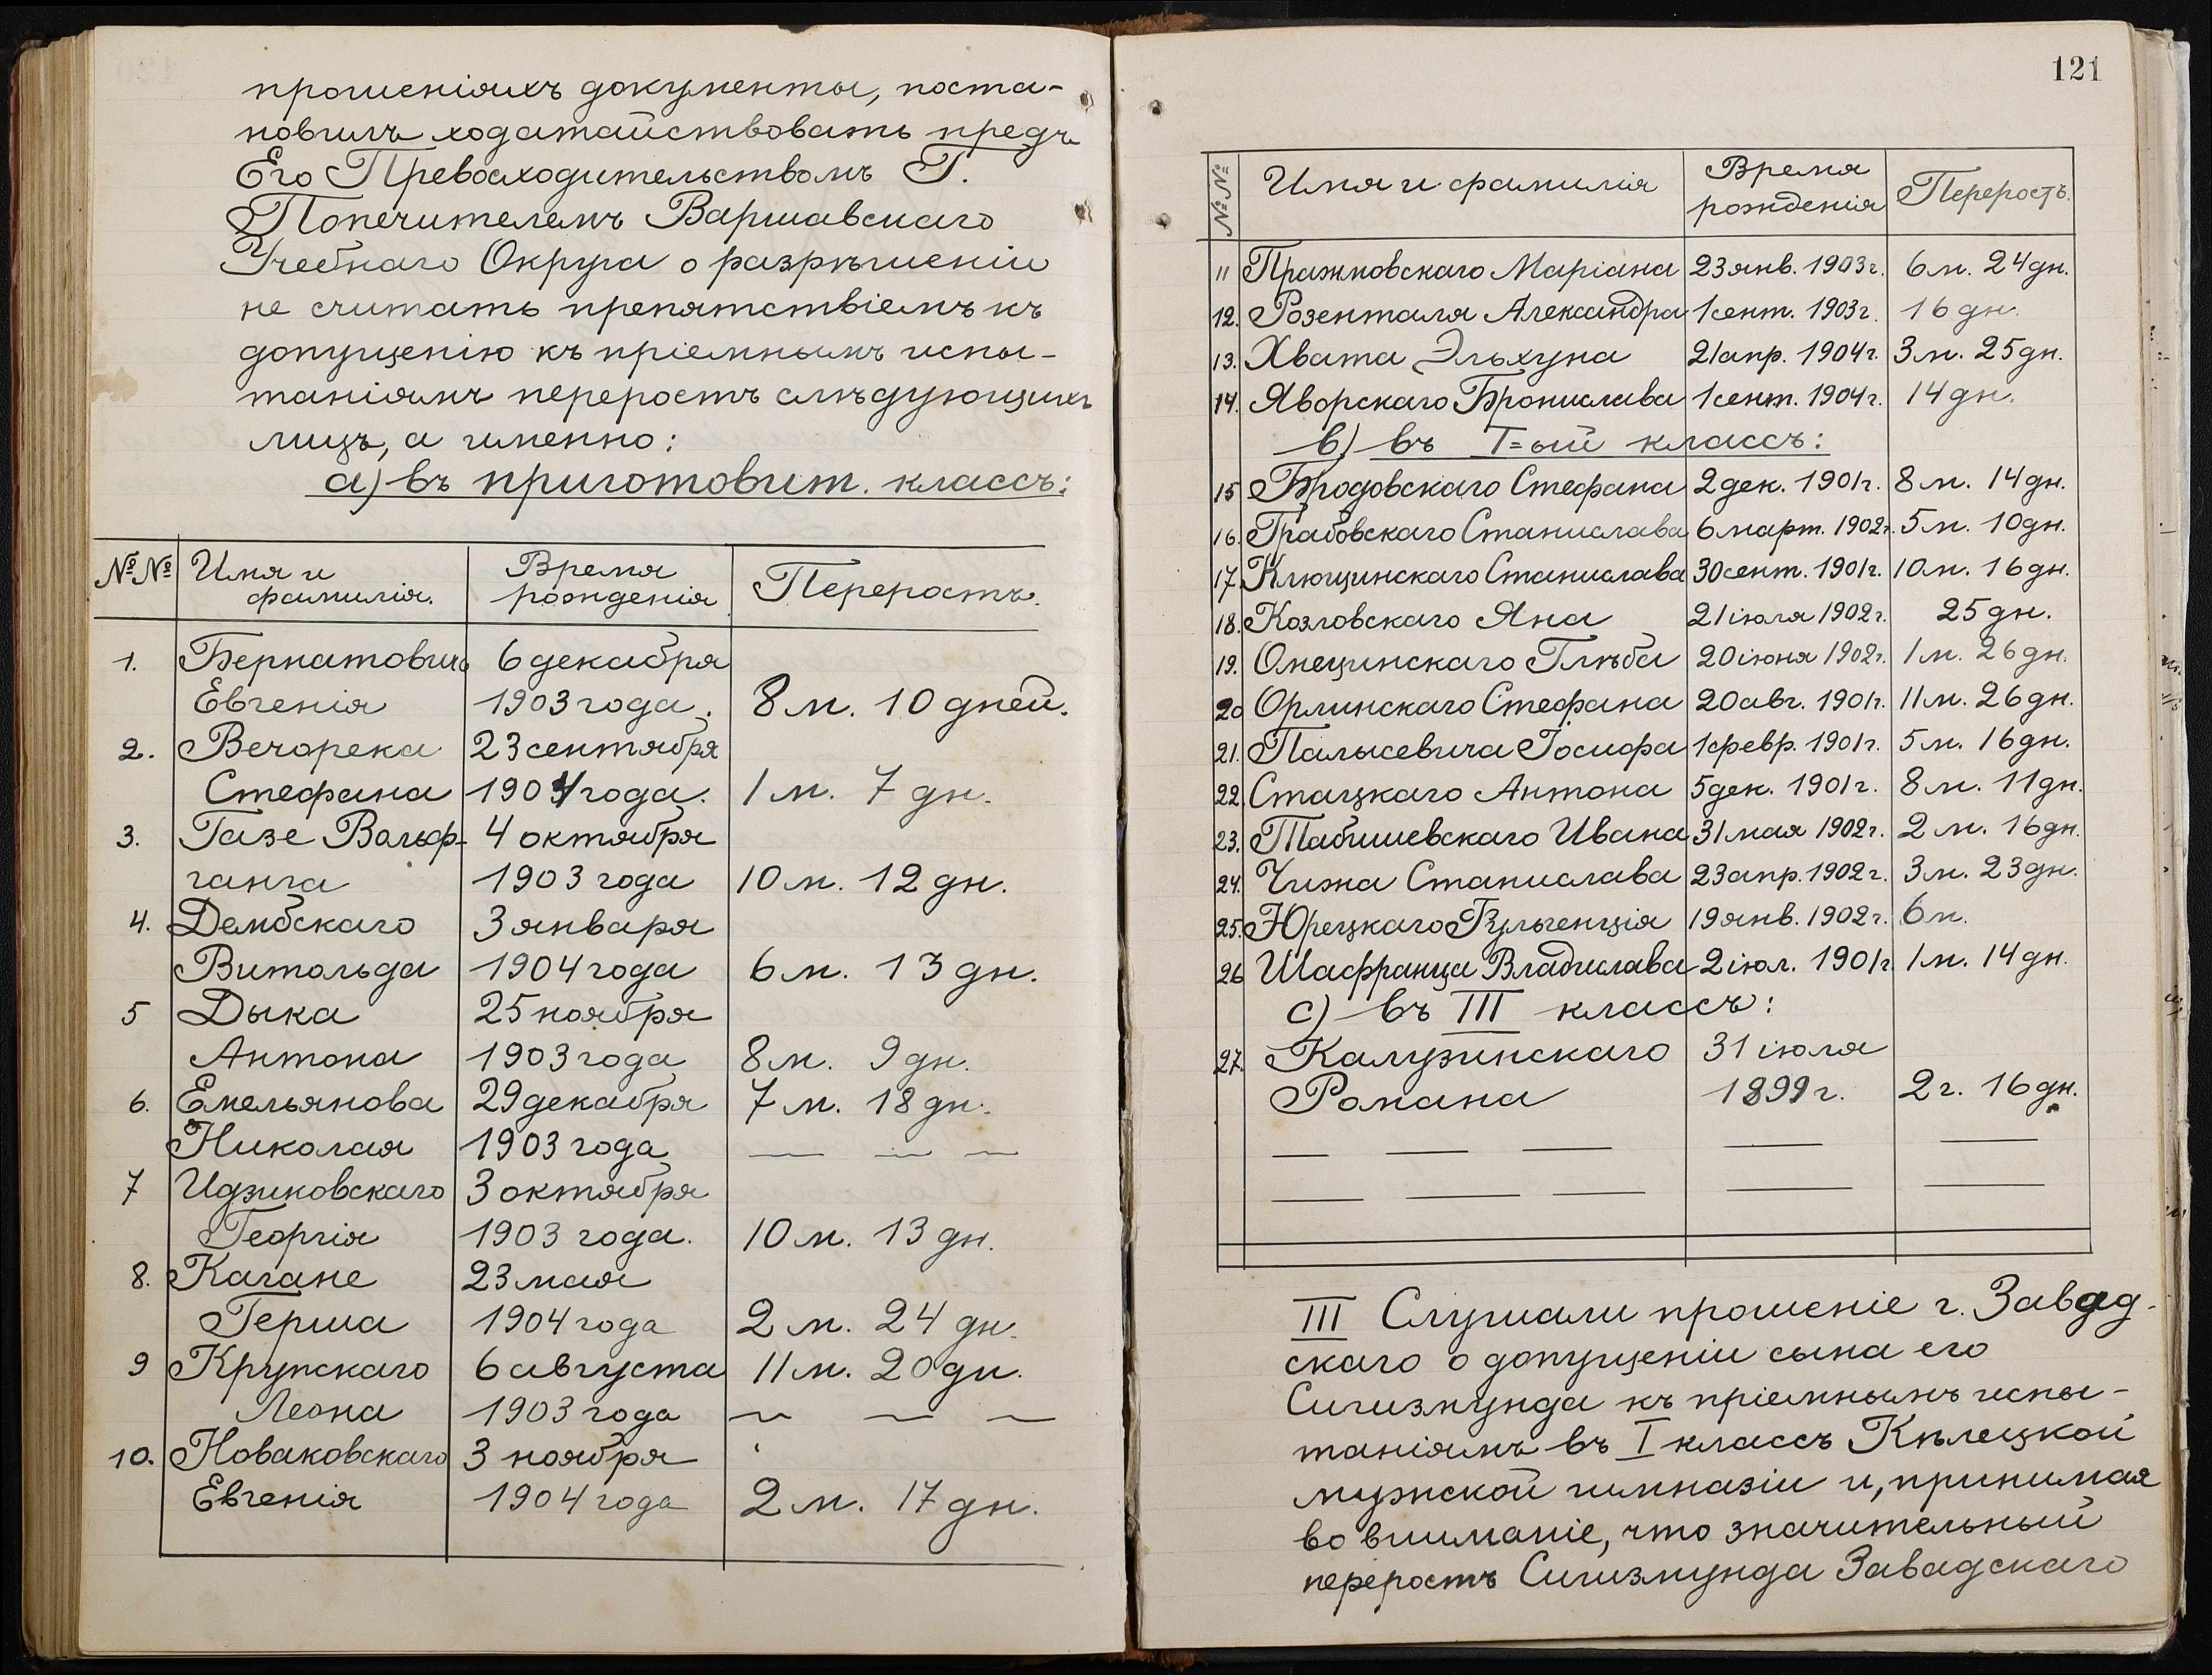 прошеніяхъ документы, поста-
новилъ ходатайствовать предъ
Его Превосходительствомъ Г.
Попечителемъ Варшавскаго
Учебнаго Округа о разрѣшеніи
не считать препятствіемъ къ
допущенію къ пріемнымъ испы-
таніямъ переростъ слѣдующихъ
лицъ, а именно:
а) въ приготовит. классъ:
№№ Имя и фамилія. Время рожденія Переростъ.
1. Бернатовича 6 декабря
Евгенія 1903 года. 8 м. 10 дней.
2. Вечорека 23 сентября
Стефана 1904 года. 1 м. 7 дн.
3. Газе Вольф- 4 октября
ганга 1903 года 10 м. 12 дн.
4. Дембскаго 3 января
Витольда 1904 года 6 м. 13 дн.
5 Дыка 25 ноября
Антона 1903 года 8 м. 9 дн.
6. Емельянова 29 декабря 7 м. 18 дн.
Николая 1903 года — — —
7 Идзиковскаго 3 октября
Георгія 1903 года. 10 м. 13 дн.
8. Кагане 23 мая
Герша 1904 года 2 м. 24 дн.
9 Крупскаго 6 августа 11 м. 20 дн.
Леона 1903 года — — —
10. Новаковскаго 3 ноября
Евгенія 1904 года 2 м. 17 дн.
121
№№ Имя и фамилія Время рожденія Переростъ.
11 Пражмовскаго Маріана 23 янв. 1903 г. 6 м. 24 дн.
12. Розенталя Александра 1 сент. 1903 г. 16 дн.
13. Хвата Эльхуна 21 апр. 1904 г. 3 м. 25 дн.
14. Яворскаго Бронислава 1 сент. 1904 г. 14 дн.
в) въ I=ый классъ:
15 Бродовскаго Стефана 2 дек. 1901 г. 8 м. 14 дн.
16. Грабовскаго Станислава 6 март. 1902 г. 5 м. 10 дн.
17. Ключинскаго Станислава 30 сент. 1901 г. 10 м. 16 дн.
18. Козловскаго Яна 21 іюля 1902 г. 25 дн.
19. Онещинскаго Глѣба 20 іюня 1902 г. 1 м. 26 дн.
20 Орлинскаго Стефана 20 авг. 1901 г. 11 м. 26 дн.
21. Палысевича Іосифа 1 февр. 1901 г. 5 м. 16 дн.
22. Стацкаго Антона 5 дек. 1901 г. 8 м. 11 дн.
23. Табишевскаго Ивана 31 мая 1902 г. 2 м. 16 дн.
24. Чижа Станислава 23 апр. 1902 г. 3 м. 23 дн.
25. Юрецкаго 19 янв. 1902 г. 6 м.
26 Шафранца Владислава 2 іюл. 1901 г. 1 м. 14 дн.
с) въ III классъ:
27. Калузинскаго 31 іюля
Романа 1899 г. 2 г. 16 дн.
— — — — —
— — — — —
III Слушали прошеніе г. Завад-
скаго о допущеніи сына его
Сигизмунда къ пріемнымъ испы-
таніямъ въ I классъ Кѣлецкой
мужской гимназіи и, принимая
во вниманіе, что значительный
переростъ Сигизмунда Завадскаго